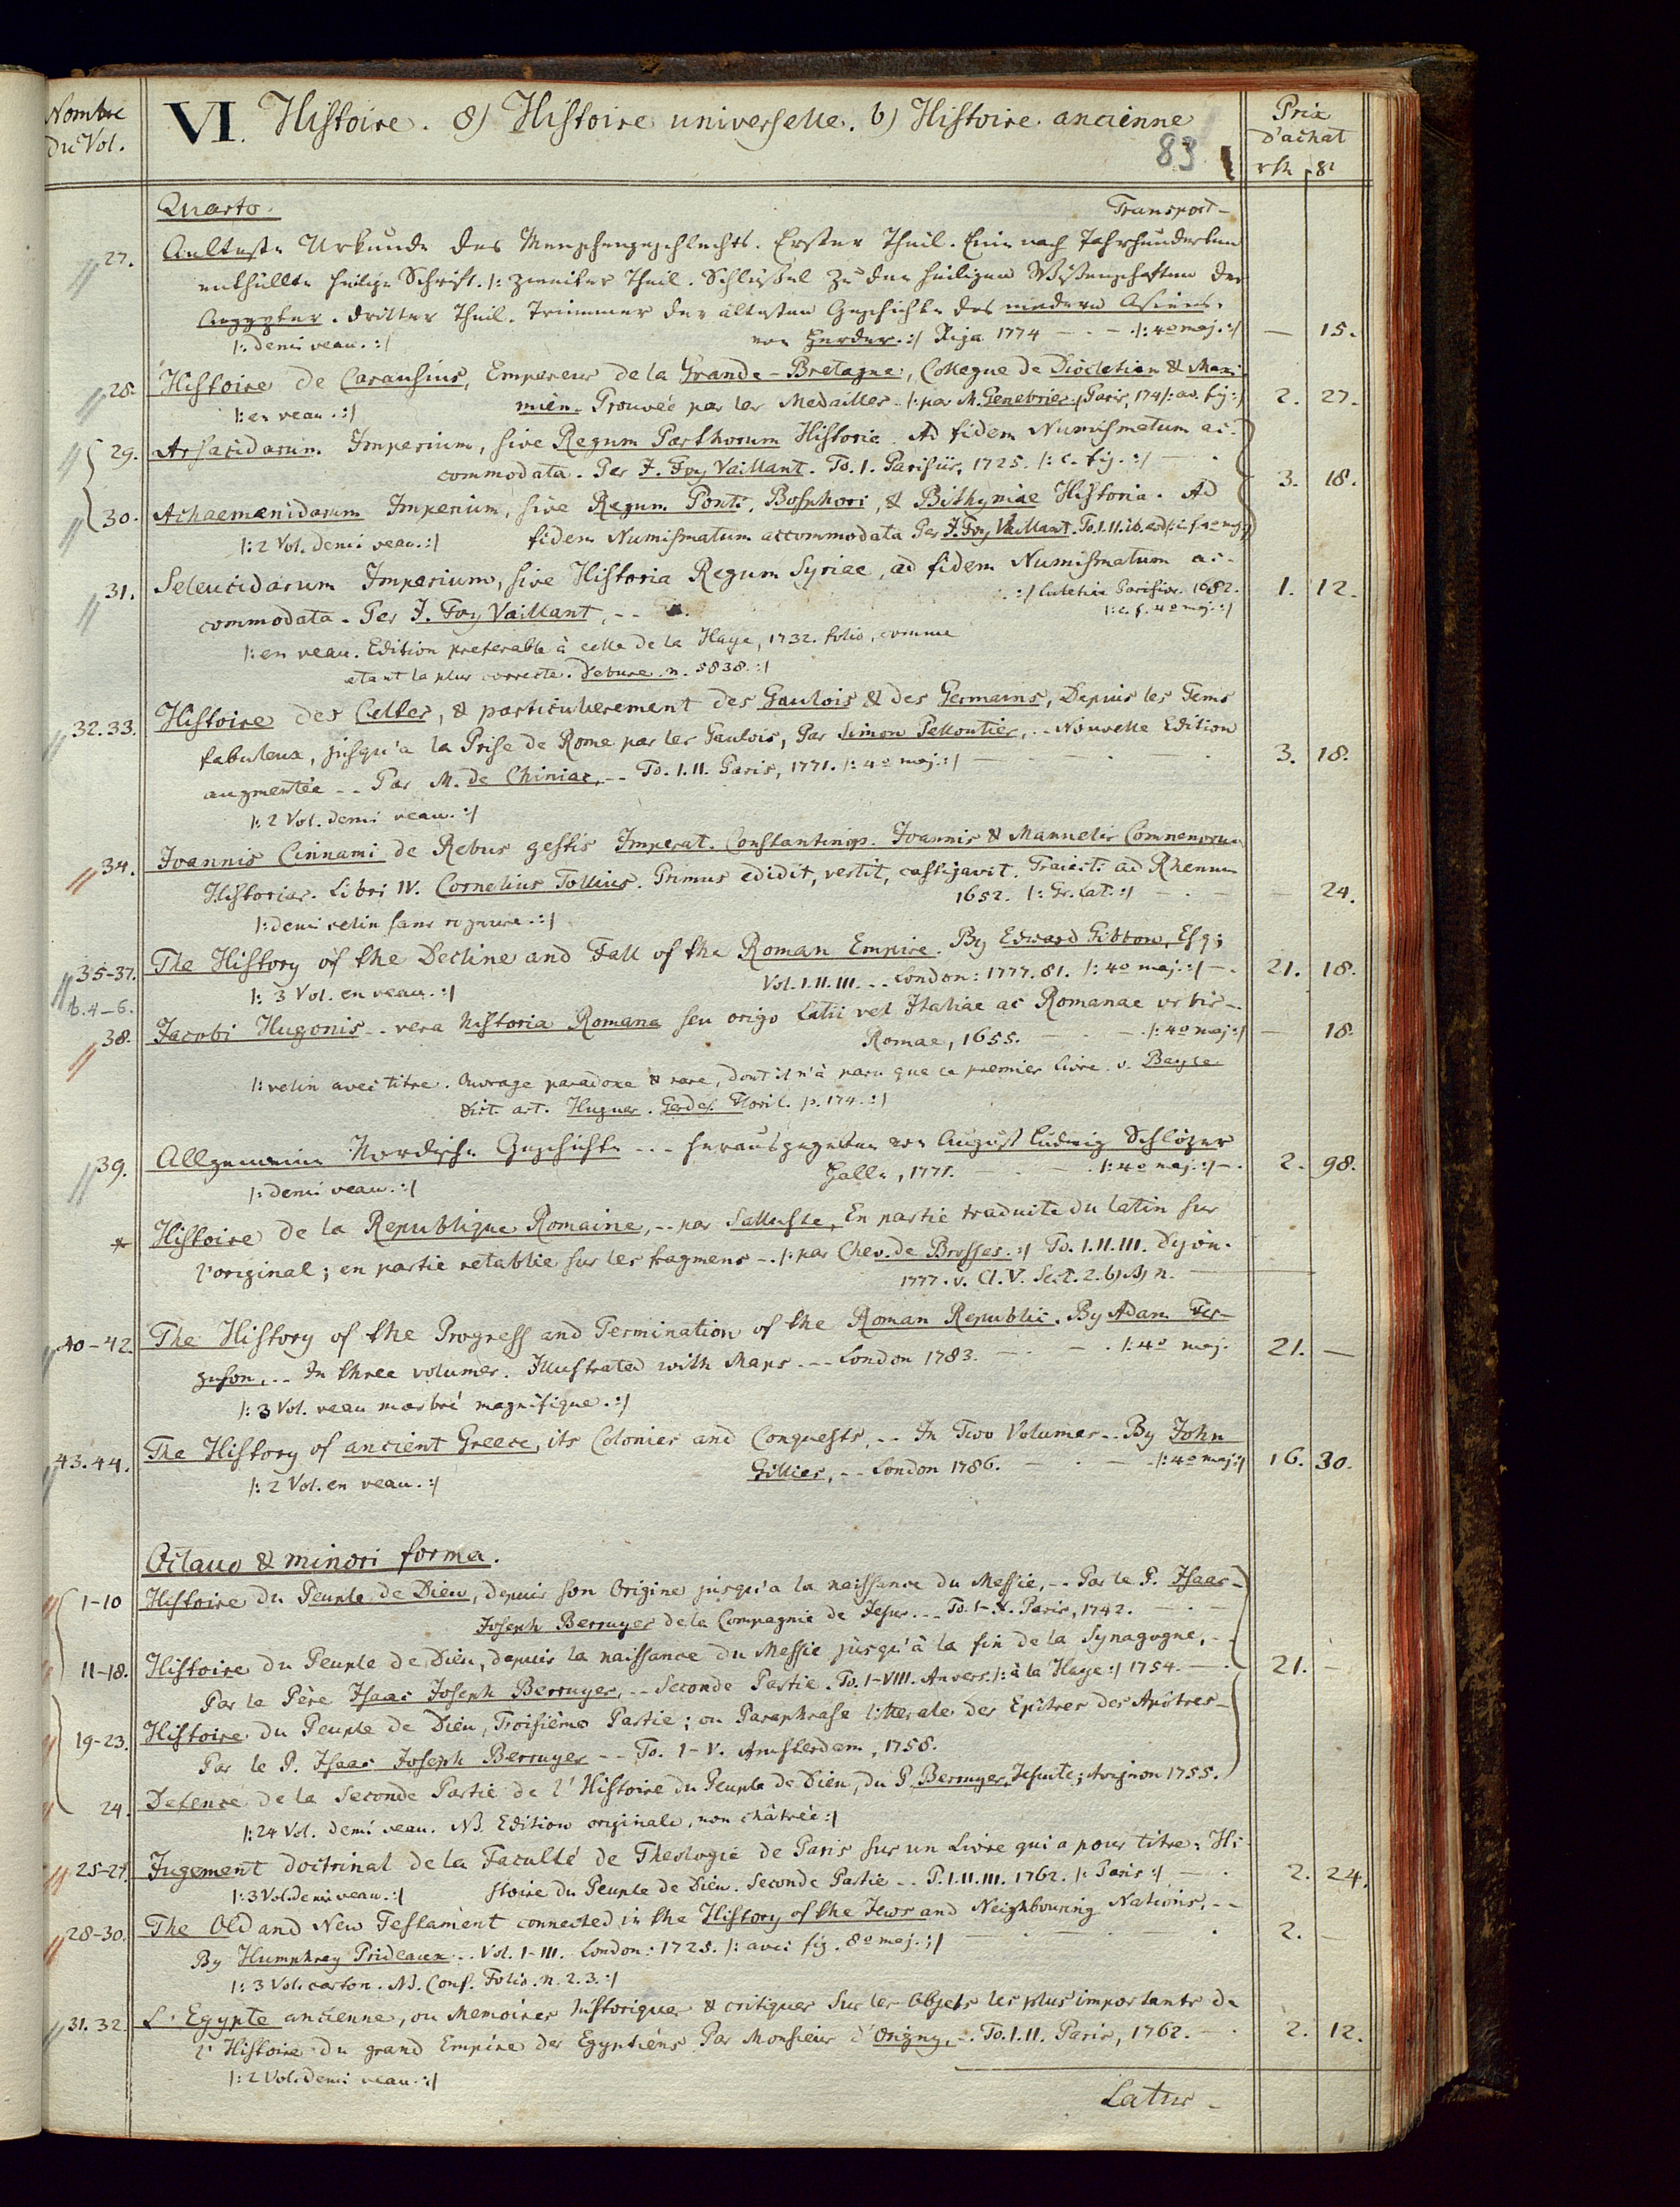 Nombre
du Vol.
VI. Histoire. 8) Histoire universelle. b) Histoire ancienne
83
Prix
d'achat
rth 8r
Quarto.
Transport -
27. Aelteste Urkunde des Menschengeschlechts. Erster Theil. Eine nach Jahrhunderten
enthüllte heilige Schrift. /: zweiter Theil. Schlüssel zu den heiligen Wissenschaften der
Aegypter. dritter Theil. Trümmer der ältesten Geschichte des niedern Asiens.
von Herder. :/ Riga 1774 — . — . /: 4o maj. :/ — 15.
/: demi veau. :/
28. Histoire de Carausius, Empereur de la Grande-Bretagne, Collegue de Diocletien & Maxi-
mien. Prouvée par les Medailles. /: par M. Genebrier. Paris, 174/: av. fig :/ 2. 27.
/: en veau. :/
29. Arsacidarum Imperium, sive Regum Parthorum Historia. Ad fidem Numismatum ac-
commodata. Per J. Foy Vaillant. To. 1. Parisiis, 1725. /: c. fig. :/ — .
30. Achaemenidarum Imperium, sive Regum Ponti, Bosphori, & Bithyniae Historia. Ad 3. 18.
fidem Numismatum accommodata Per J. Foy Vaillant. To. 1. II. ib. eod /: c. f. 4o maj :/
/: 2 Vol. demi veau. :/
31. Seleucidarum Imperium, sive Historia Regum Syriae, ad fidem Numismatum ac-
commodata. Per J. Foy Vaillant, -- :/ Lutetiae Parisior. 1682. 1. 12.
/: c. f. 4o maj. :/
/: en veau. Edition preferable à celle de la Haye, 1732. folio, comme
etant la plus correcte. Debure. n. 5838. :/
32. 33. Histoire des Celtes, & particulierement des Gaulois & des Germains, Depuis les Tems
fabuleux, jusqu'a la Prise de Rome par les Gaulois, Par Simon Pelloutier, .. Nouvelle Edition
augmentée -- Par M. de Chiniac, -- To. 1. II. Paris, 1771. /: 4o maj. :/ — 3. 18.
/: 2 Vol. demi veau. :/
34. Joannis Cinnami de Rebus gestis Imperat. Constantinop. Joannis & Manuelis Comnenorum
Historiar. Libri IV. Cornelius Tollius. Primus edidit, vertit, castigavit. Traiecti ad Rhenum
1652. /: Gr. Lat. :/ — . — — 24.
/: demi velin sans rognure. :/
35-37. The History of the Decline and Fall of the Roman Empire. By Edward Gibbon, Esq;
Vol. 1. II. III. -- London: 1777. 81. /: 4o maj. :/ — . 21. 18.
/: 3 Vol. en veau. :/
b. 4-6.
38. Jacobi Hugonis -- vera historia Romana seu origo Latii vel Italiae ac Romanae urbis --
Romae, 1655. — . — . /: 4o maj :/ — 18.
/: velin avec titre. Ouvrage paradoxe & rare, dont il n'à paru que ce premier Livre. v. Bayle
Dict. art. Hugues. Gerdes. Floril. p. 174. :/
39. Allgemeine Nordische Geschichte ... herausgegeben von August Ludwig Schlözer
Halle, 1771. — . — . /: 4o maj. :/ — . 2. 98.
/: demi veau. :/
* Histoire de la Republique Romaine, -- par Salluste, En partie traduite du latin sur
l'original; en partie retablie sur les fragmens -. /: par Chev. de Brosses. :/ To. 1. II. III. Dijon.
1777. v. Cl. V. Sect. 2. b)
40-42. The History of the Progress and Termination of the Roman Republic. By Adam Fer-
guson, .. In three volumes. Illustrated with Maps. -- London 1783. — . — . /: 4o maj. 21. —
/: 3 Vol. veau marbré magnifique. :/
43. 44. The History of ancient Greece, its Colonies and Conquests, -- In Two Volumes -- By John
Gillies, -- London 1786. — . — /: 4o maj :/ 16. 30.
/: 2 Vol. en veau. :/
Octavo & minori forma.
1-10 Histoire du Peuple de Dieu, depuis son Origine jusqu'a la naissance du Messie, -- Par le P. Isaac-
Joseph Berruyer de la Compagnie de Jesus. -- To. 1-X. Paris, 1742. — . —
11-18. Histoire du Peuple de Dieu, depuis la naissance du Messie jusqu'à la fin de la Synagogue, -- 21. —
Par le Père Isaac Joseph Berruyer, -- Seconde Partie. To. 1-VIII. Anvers. /: à la Haye :/ 1754. — .
19-23. Histoire du Peuple de Dieu, Troisième Partie; ou Paraphrase litterale des Epîtres des Apôtres --
Par le P. Isaac Joseph Berruyer -- To. 1-V. Amsterdam, 1758.
24. Defense de la Seconde Partie de l'Histoire du Peuple de Dieu, du P. Berruyer, Jesuite; Avignon 1755.
/: 24 Vol. demi veau. NB. Edition originale, non châtrée :/
25-27. Jugement doctrinal de la Faculté de Theologie de Paris sur un Livre qui a pour titre: Hi-
stoire du Peuple de Dieu. Seconde Partie -- P. 1. II. III. 1762. /: Paris :/ — . 2. 24.
/: 3 Vol. demi veau. :/
28-30. The Old and New Testament connected in the History of the Jews and Neighbouring Nations, --
By Humphrey Prideaux .. Vol. 1-III. London: 1725. /: avec fig. 8o maj. :/ — 2. —
/: 3 Vol. carton. NB. Conf. Folio. n. 2. 3. :/
31. 32. L'Egypte ancienne, ou Memoires historiques & critiques sur les Objets les plus importants de
l'Histoire du grand Empire des Egyptiens Par Monsieur d'Origny, -. To. 1. II. Paris, 1762. — . 2. 12.
/: 2 Vol. demi veau. :/
Latus -